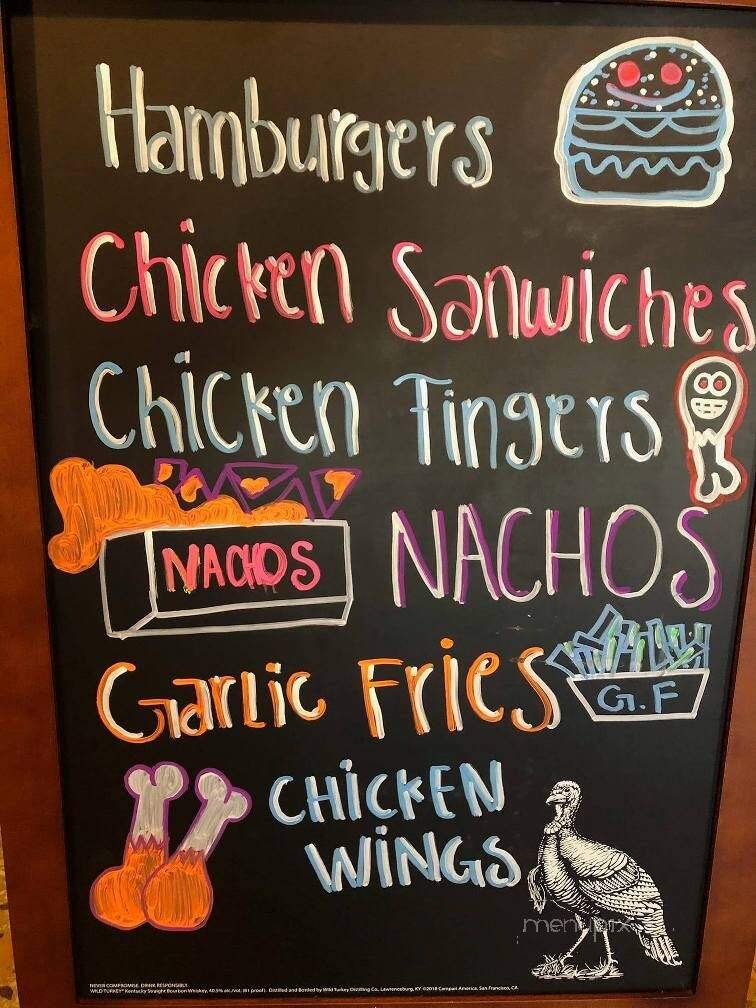 Hamburgers
Chicken Sanwiches
Chicken Fingers
NACHOS NACHOS
Garlic Fries G.F
CHICKEN
WINGS
menupix
NEVER COMPROMISE. DRINK RESPONSIBLY.
WILD TURKEY® Kentucky Straight Bourbon Whiskey, 40.5% alc./vol. (81 proof). Distilled and Bottled by Wild Turkey Distilling Co., Lawrenceburg, KY. ©2018 Campari America, San Francisco, CA.